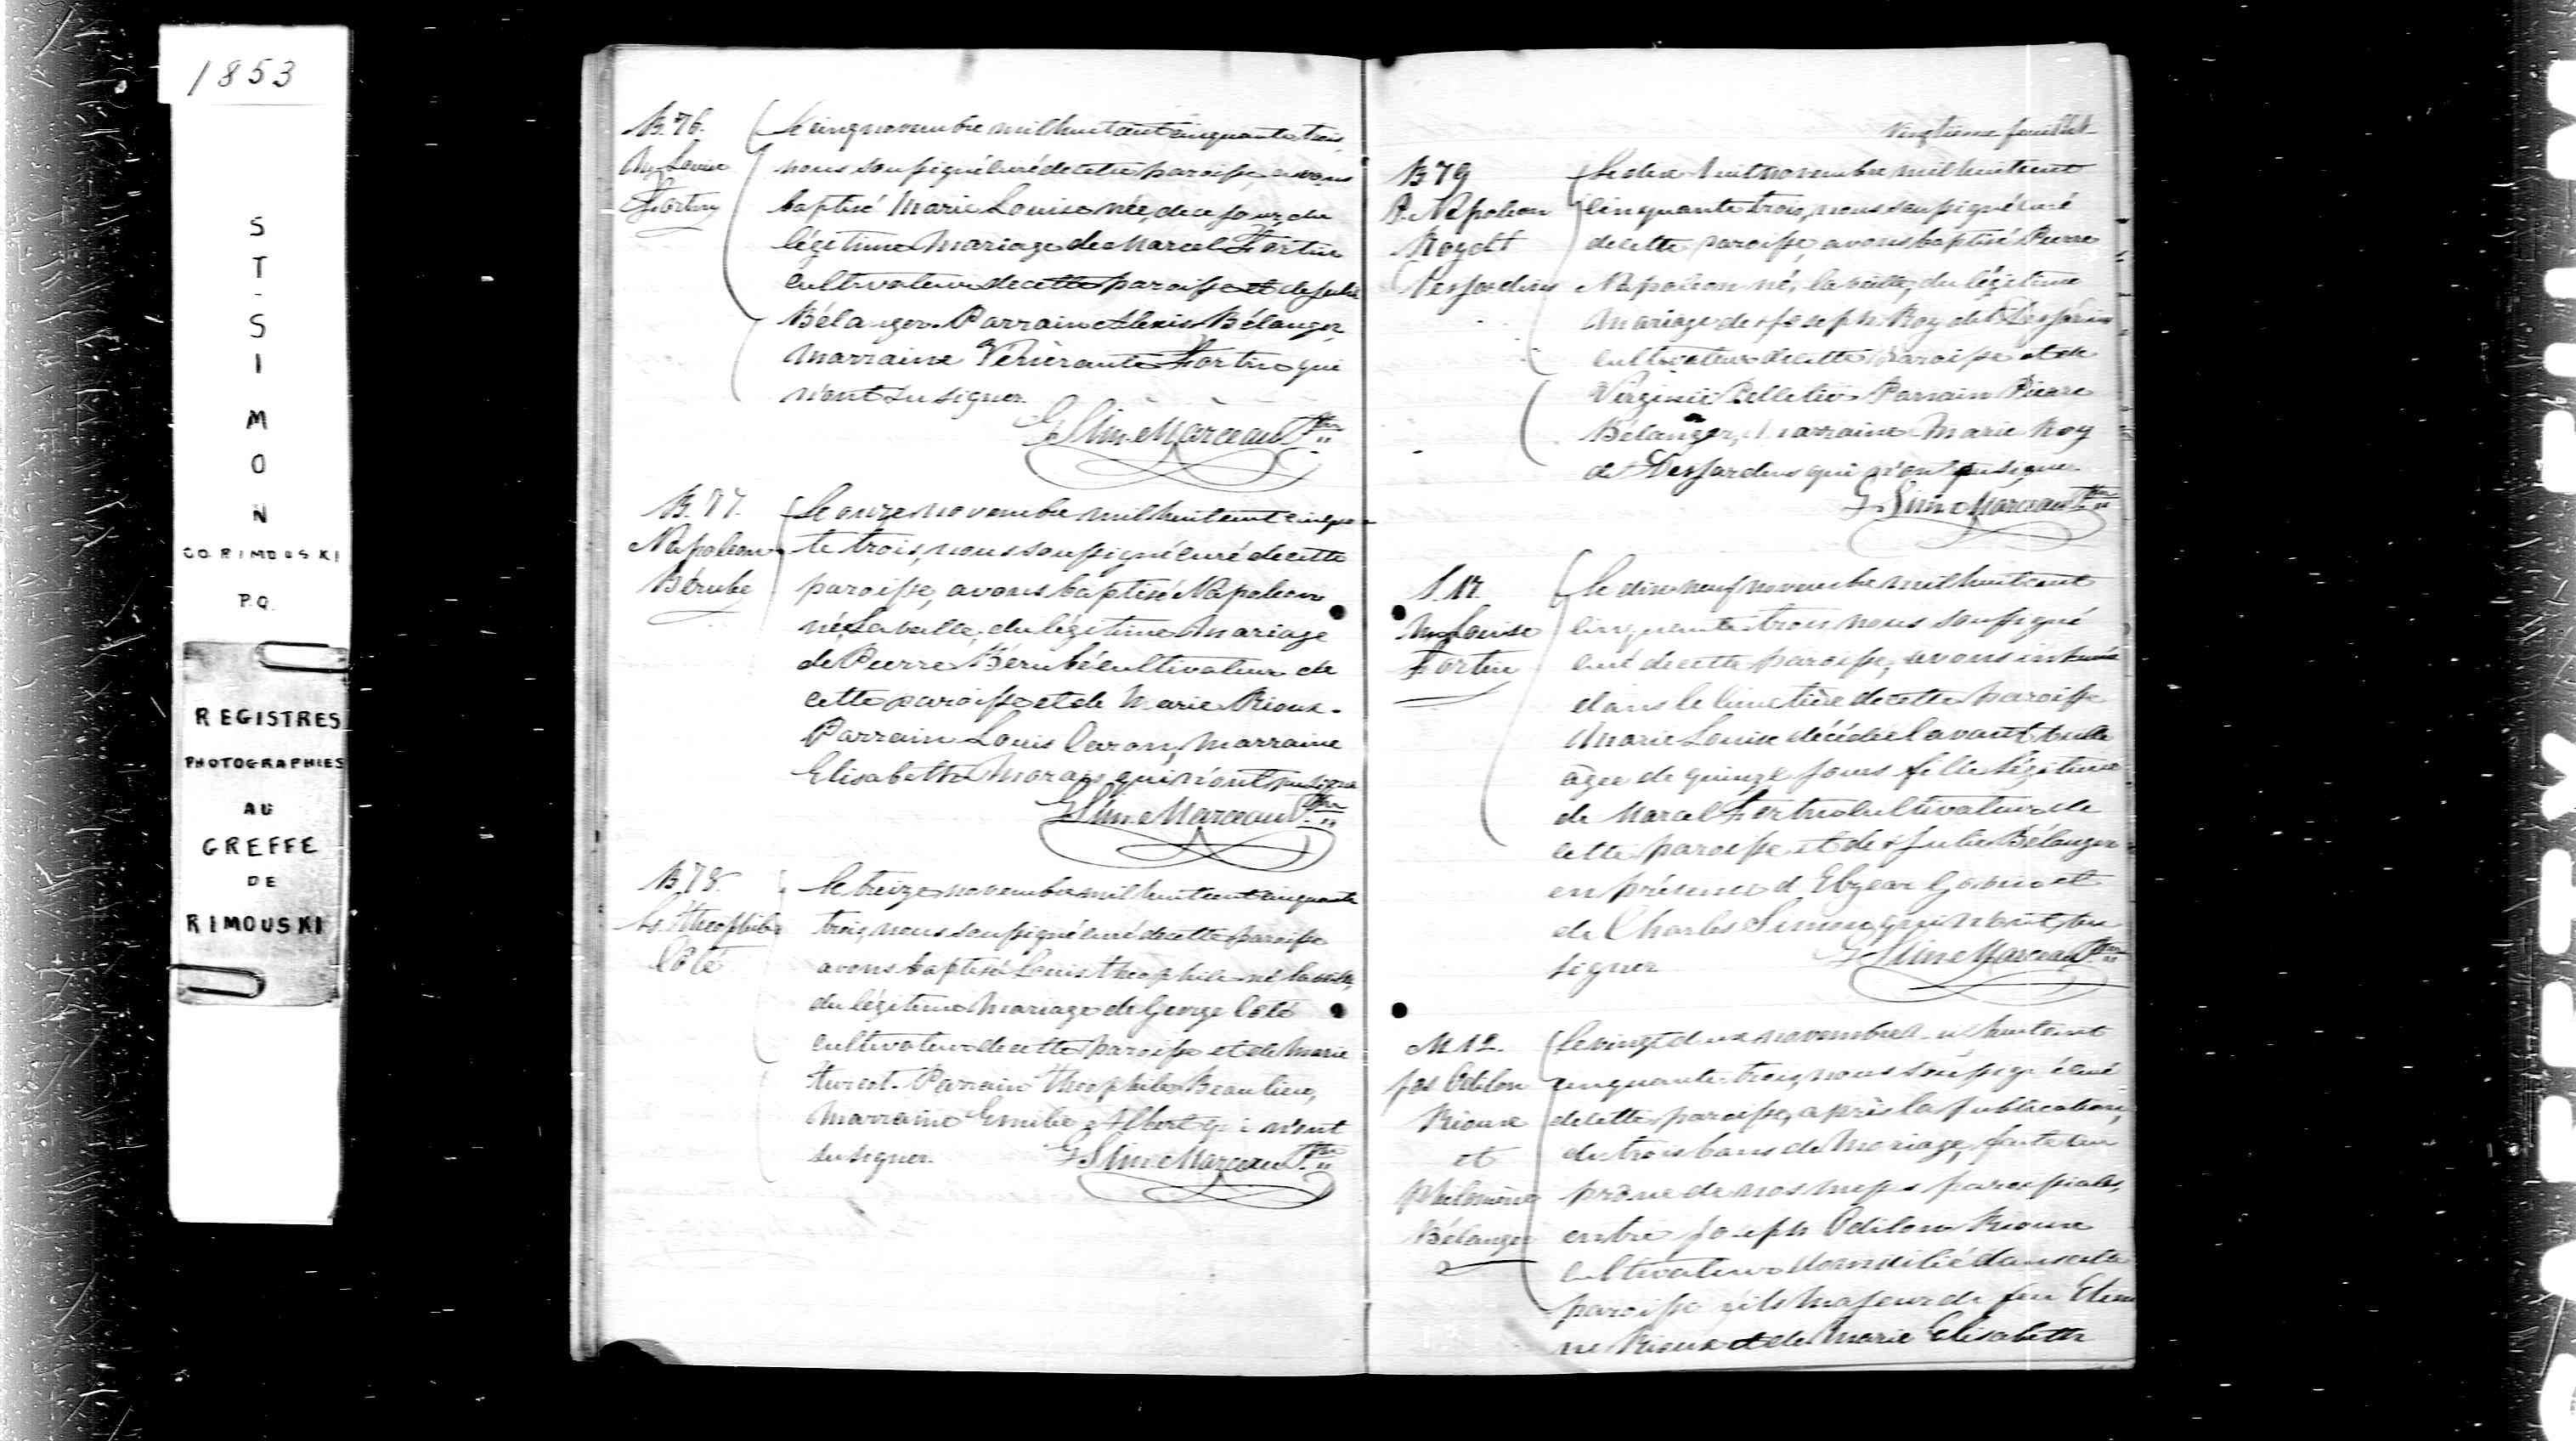 1853
ST-SIMON
CO. RIMOUSKI
P.Q.
REGISTRES
PHOTOGRAPHIES
AU
GREFFE
DE
RIMOUSKI
B. 76.
M. Louise
Fortin
Le cinq novembre mil huit cent cinquante trois,
nous soussigné curé de cette paroisse, avons
baptisé Marie Louise née, de ce jour, du
légitime mariage de Marcel Fortin
cultivateur de cette paroisse et de Julie
Bélanger. Parrain Alexis Bélanger,
marraine Vénérante Fortin qui
n'ont su signer.
G. Sim. Marceau Ptre
B. 77.
Napoléon
Bérubé
Le onze novembre mil huit cent cinquan
te trois, nous soussigné curé de cette
paroisse, avons baptisé Napoléon
né, la veille, du légitime mariage
de Pierre Bérubé cultivateur de
cette paroisse et de Marie Rioux.
Parrain Louis Caron, Marraine
Elisabeth Morais qui n'ont su signer
G. Sim. Marceau Ptre
B. 78.
Ls. Théophile
Côté
Le treize novembre mil huit cent cinquante
trois, nous soussigné curé de cette paroisse
avons baptisé Louis théophile né la veille,
du légitime mariage de George Côté
cultivateur de cette paroisse et de Marie
Parrain théophile Beaulieu,
marraine Emilie Albert qui n'ont
su signer.
G. Sim. Marceau Ptre
Vingtième feuillet
B 79
P. Napoléon
Roy dit
Desjardins
Le dix huit novembre mil huit cent
cinquante trois, nous soussigné curé
de cette paroisse, avons baptisé Pierre
Napoléon né, la veille, du légitime
mariage de Joseph Roy dit Desjardins
cultivateur de cette paroisse et de
Virginie Pelletier Parrain Pierre
Bélanger, Marraine Marie Roy
dit Desjardins qui n'ont pu signer
G. Sim. Marceau Ptre
M. Louise
Fortin
Le dix neuf novembre mil huit cent
cinquante trois nous soussigné
curé de cette paroisse, avons inhumé
dans le cimetière de cette paroisse
Marie Louise décédée l'avant veille
agée de quinze jours fille légitime
de Marcel Fortin cultivateur de
cette paroisse et de Julie Bélanger
en présence d'Elzear et
de Charles Simon qui n'ont su
signer
G. Sim. Marceau Ptre
M 12.
Jos Odilon
Rioux
et
Philomène
Bélanger
Le vingt deux novembre mil huit cent
cinquante trois, nous soussigné curé
de cette paroisse, après la publication,
de trois bans de mariage, faite au
prône de nos messes paroissiales,
entre Joseph Odilon Rioux
cultivateur domicilié dans cette
paroisse fils majeur de feu Etien
ne Rioux et de Marie Elisabeth